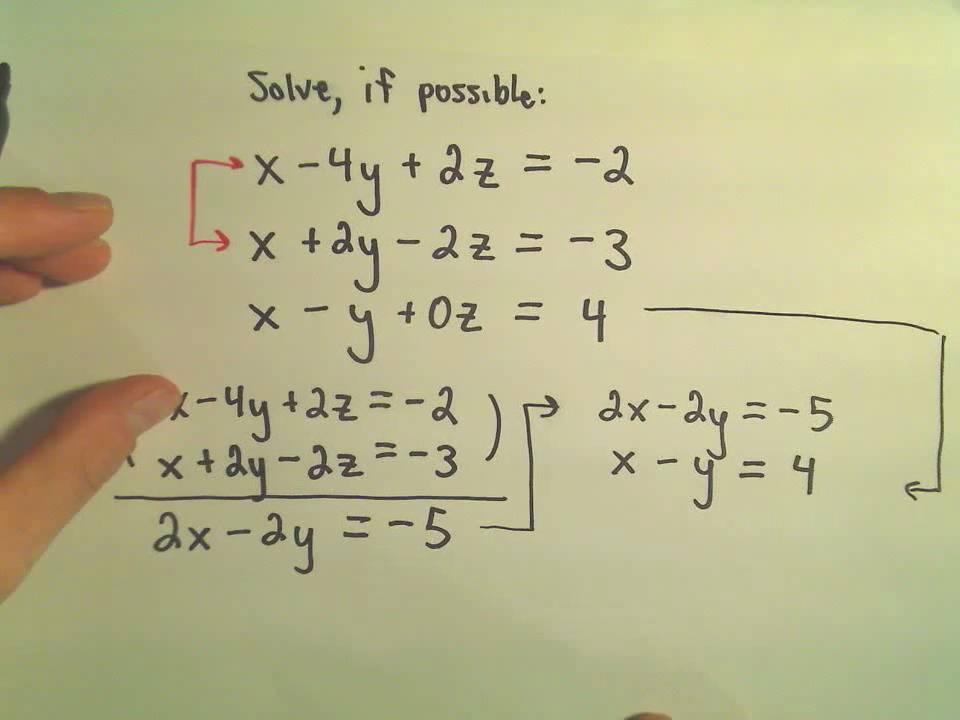 Solve, if possible:
x - 4y + 2z = -2
x + 2y - 2z = -3
x - y + 0z = 4
x - 4y + 2z = -2 )
x + 2y - 2z = -3
2x - 2y = -5
2x - 2y = -5
x - y = 4